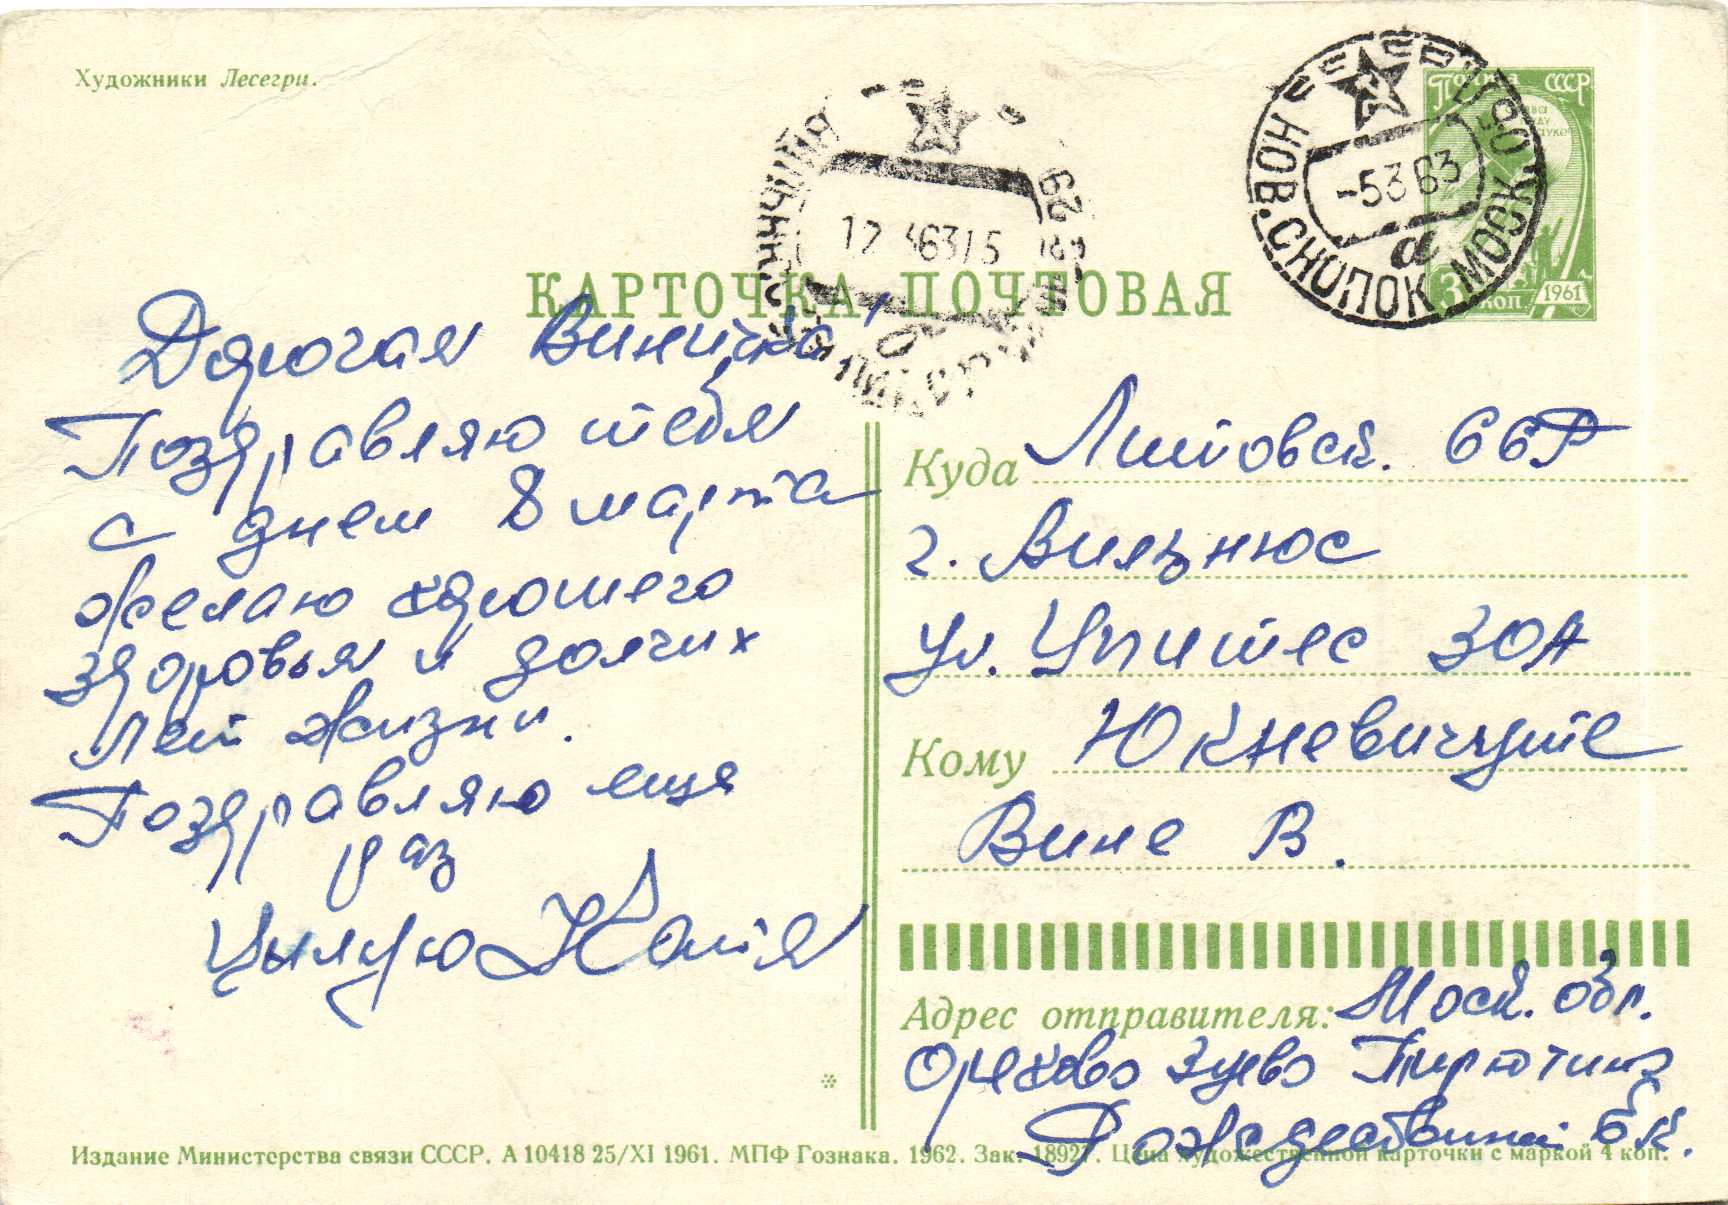 Художники Лесегри.
Почта СССР
3 коп. 1961
НОВ. СНОПОК МОСК. ОБЛ.
-5 3 63
а
КАРТОЧКА ПОЧТОВАЯ
Дорогая Виничка!
Поздравляю тебя
с днем 8 марта
Желаю хорошего
здоровья и долгих
лет жизни.
Поздравляю еще
раз
Цылую Катя
Куда Литовск. ССР
г. Вильнюс
ул. Упитес 30А
Кому Юкневичуте
Вине В.
Адрес отправителя: Моск. обл.
Орехово Зуево
6 к.
Издание Министерства связи СССР. А 10418 25/XI 1961. МПФ Гознака. 1962. Зак. 18927. Цена художественной карточки с маркой 4 коп.